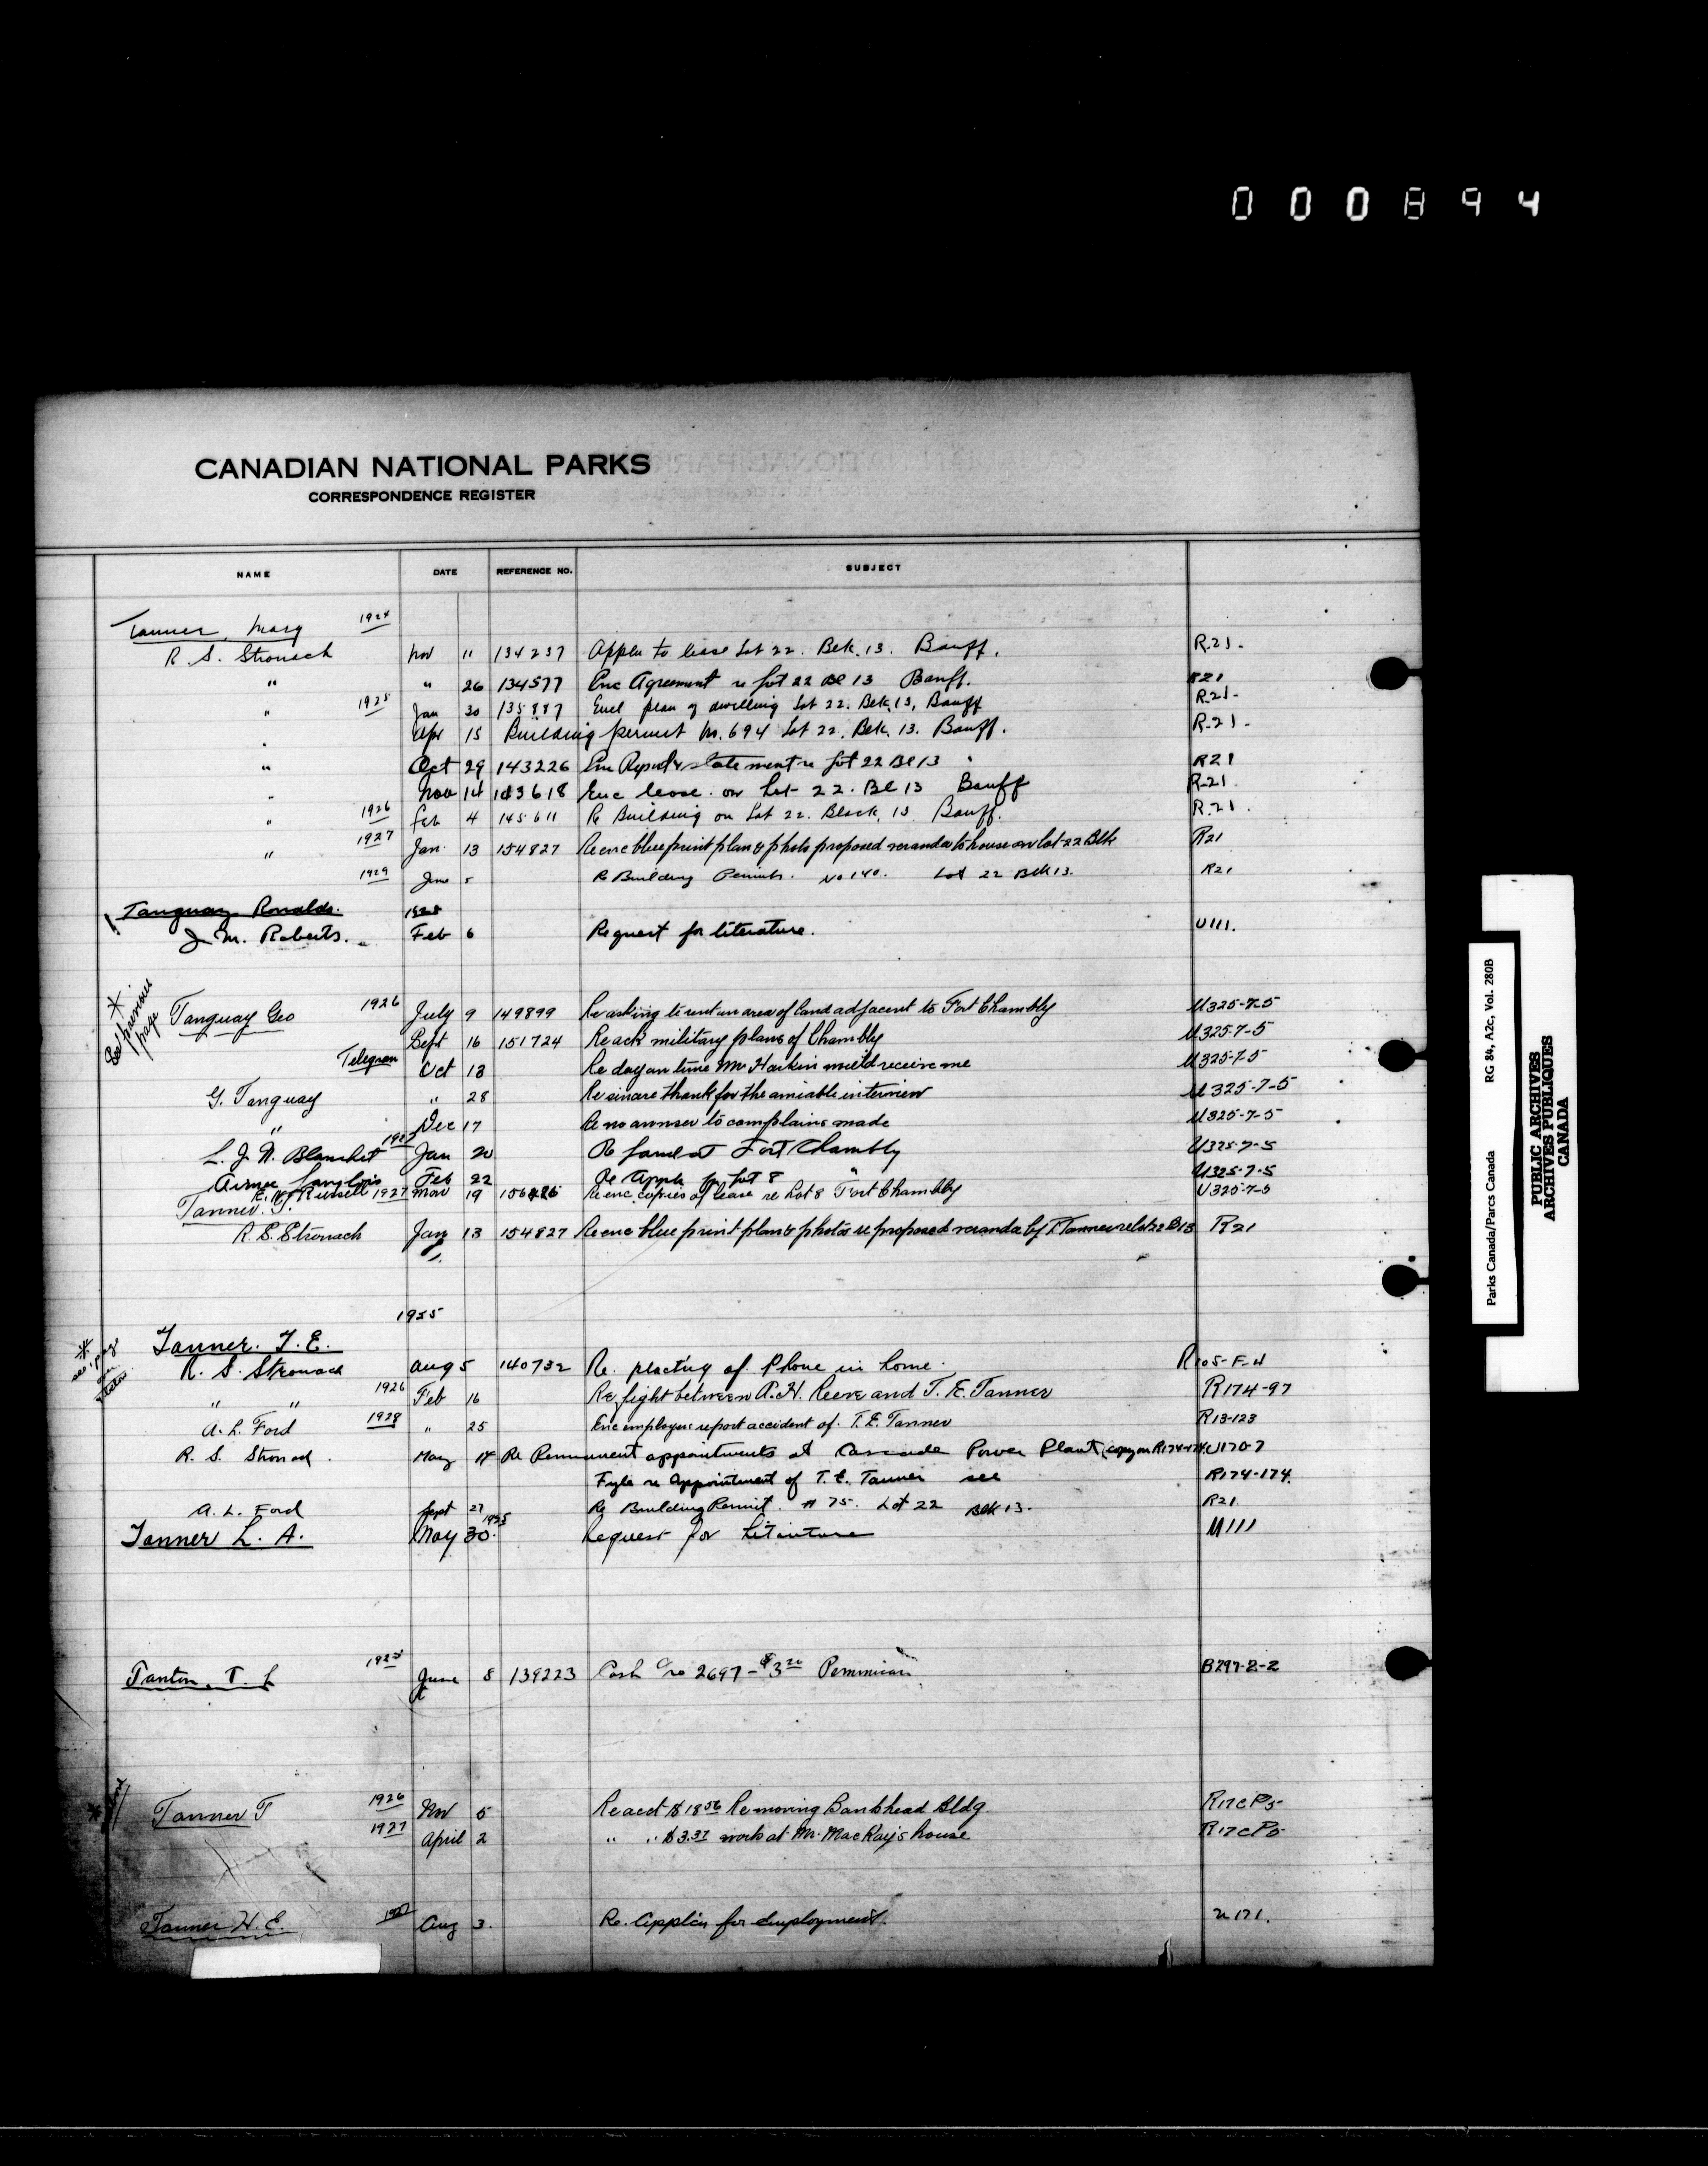 000894
CANADIAN NATIONAL PARKS
CORRESPONDENCE REGISTER
NAME DATE REFERENCE NO. SUBJECT
Tanner, Mary 1924
R. S. Stronach Nov 11 134237 Appln to lease Lot 22. Blk. 13. Banff. R.21.
" " 26 134577 Enc Agreement re Lot 22 Bl 13 Banff. R21
" 1925 Jan 30 135887 Encl plan of dwelling Lot 22. Blk. 13, Banff R.21-
" Apr 15 Building permit No. 694 Lot 22. Blk. 13. Banff. R.21-
" Oct 29 143226 Enc Report & statement re Lot 22 Bl 13 " R21
" Nov 14 143618 Enc lease. on Lot 22. Bl 13 Banff R.21
" 1926 Feb 4 145611 Re Building on Lot 22. Block, 13 Banff. R.21.
" 1927 Jan. 13 154827 Re enc blue print plan & photo proposed veranda to house on lot 22 Blk R21
1929 June 5 Re Building Permit. No 140. Lot 22 Blk 13. R21
Tanguay Ronaldo. 1928
J. M. Roberts. Feb 6 Request for literature. U111.
* See previous page
Tanguay Geo 1926 July 9 149899 Re asking to rent an area of land adjacent to Fort Chambly U325-7-5
Sept 16 151724 Re ack military plans of Chambly U325-7-5
Telegram Oct 13 Re day an time Mr Harkin could receive me U325-7-5
G. Tanguay " 28 Re sincere thank for the amiable interview U325-7-5
" Dec 17 Re no answer to complains made U325-7-5
L. J. N. Blanchet 1927 Jan 20 Re land at Fort Chambly U325-7-5
Aimee Langlois Feb 22 Re Appln for Lot 8 " U325-7-5
E. W. Russell 1927 Mar 19 Re enc. copies of lease re Lot 8 Fort Chambly U325-7-5
Tanner. T.
R. S. Stronach Jan 13 154827 Re enc blue print plan & photos re proposed veranda by T. Tanner re lot 22 B 13 R21
1925
Tanner. T. E.
* see page
R. S. Stronach Aug 5 140732 Re. placing of Phone in home. R105-F-4
" " 1926 Feb 16 Re fight between A. H. Reeve and T. E. Tanner R174-97
A. L. Ford 1928 " 25 Enc employee report accident of T. E. Tanner R13-123
R. S. Stronach. May 14 Re Permanent appointments at Cascade Power Plant (copy on R174-174) U170-7
Fyle re Appointment of T. E. Tanner see R174-174.
A. L. Ford Sept 27 Re Building Permit. # 75. Lot 22 Blk 13. R21
Tanner L. A. 1925 May 30. Request for Literature U111
Tanton, T. L 1925 June 8 139223 Cash C/no 2697 - $3 20 Pemmican B297-2-2
Tanner T 1926 Nov 5 Re acct $18 56 Removing Bankhead Bldg R17CP5
1927 April 2 " " $3.37 work at Mr. MacKay's house R17CP5
Tanner H. E. 1927 Aug 3. Re. Appl'n for employment. U171.
Parks Canada/Parcs Canada RG 84, A2c, Vol. 280B
PUBLIC ARCHIVES
ARCHIVES PUBLIQUES
CANADA